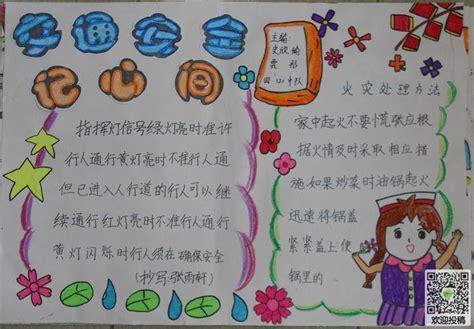 交通安全
记心间
主编:
史欣瑜
四(1)中队
指挥灯信号绿灯亮时准许
行人通行黄灯亮时不准行人通
但已进入人行道的行人可以继
续通行红灯亮时不准行人通行
黄灯闪烁时行人须在确保安全
(抄写:张雨轩)
火灾处理方法
家中起火不要慌张应根
据火情及时采取相应措
施如果炒菜时油锅起火
迅速将锅盖
紧紧盖上使
锅里的
欢迎投稿